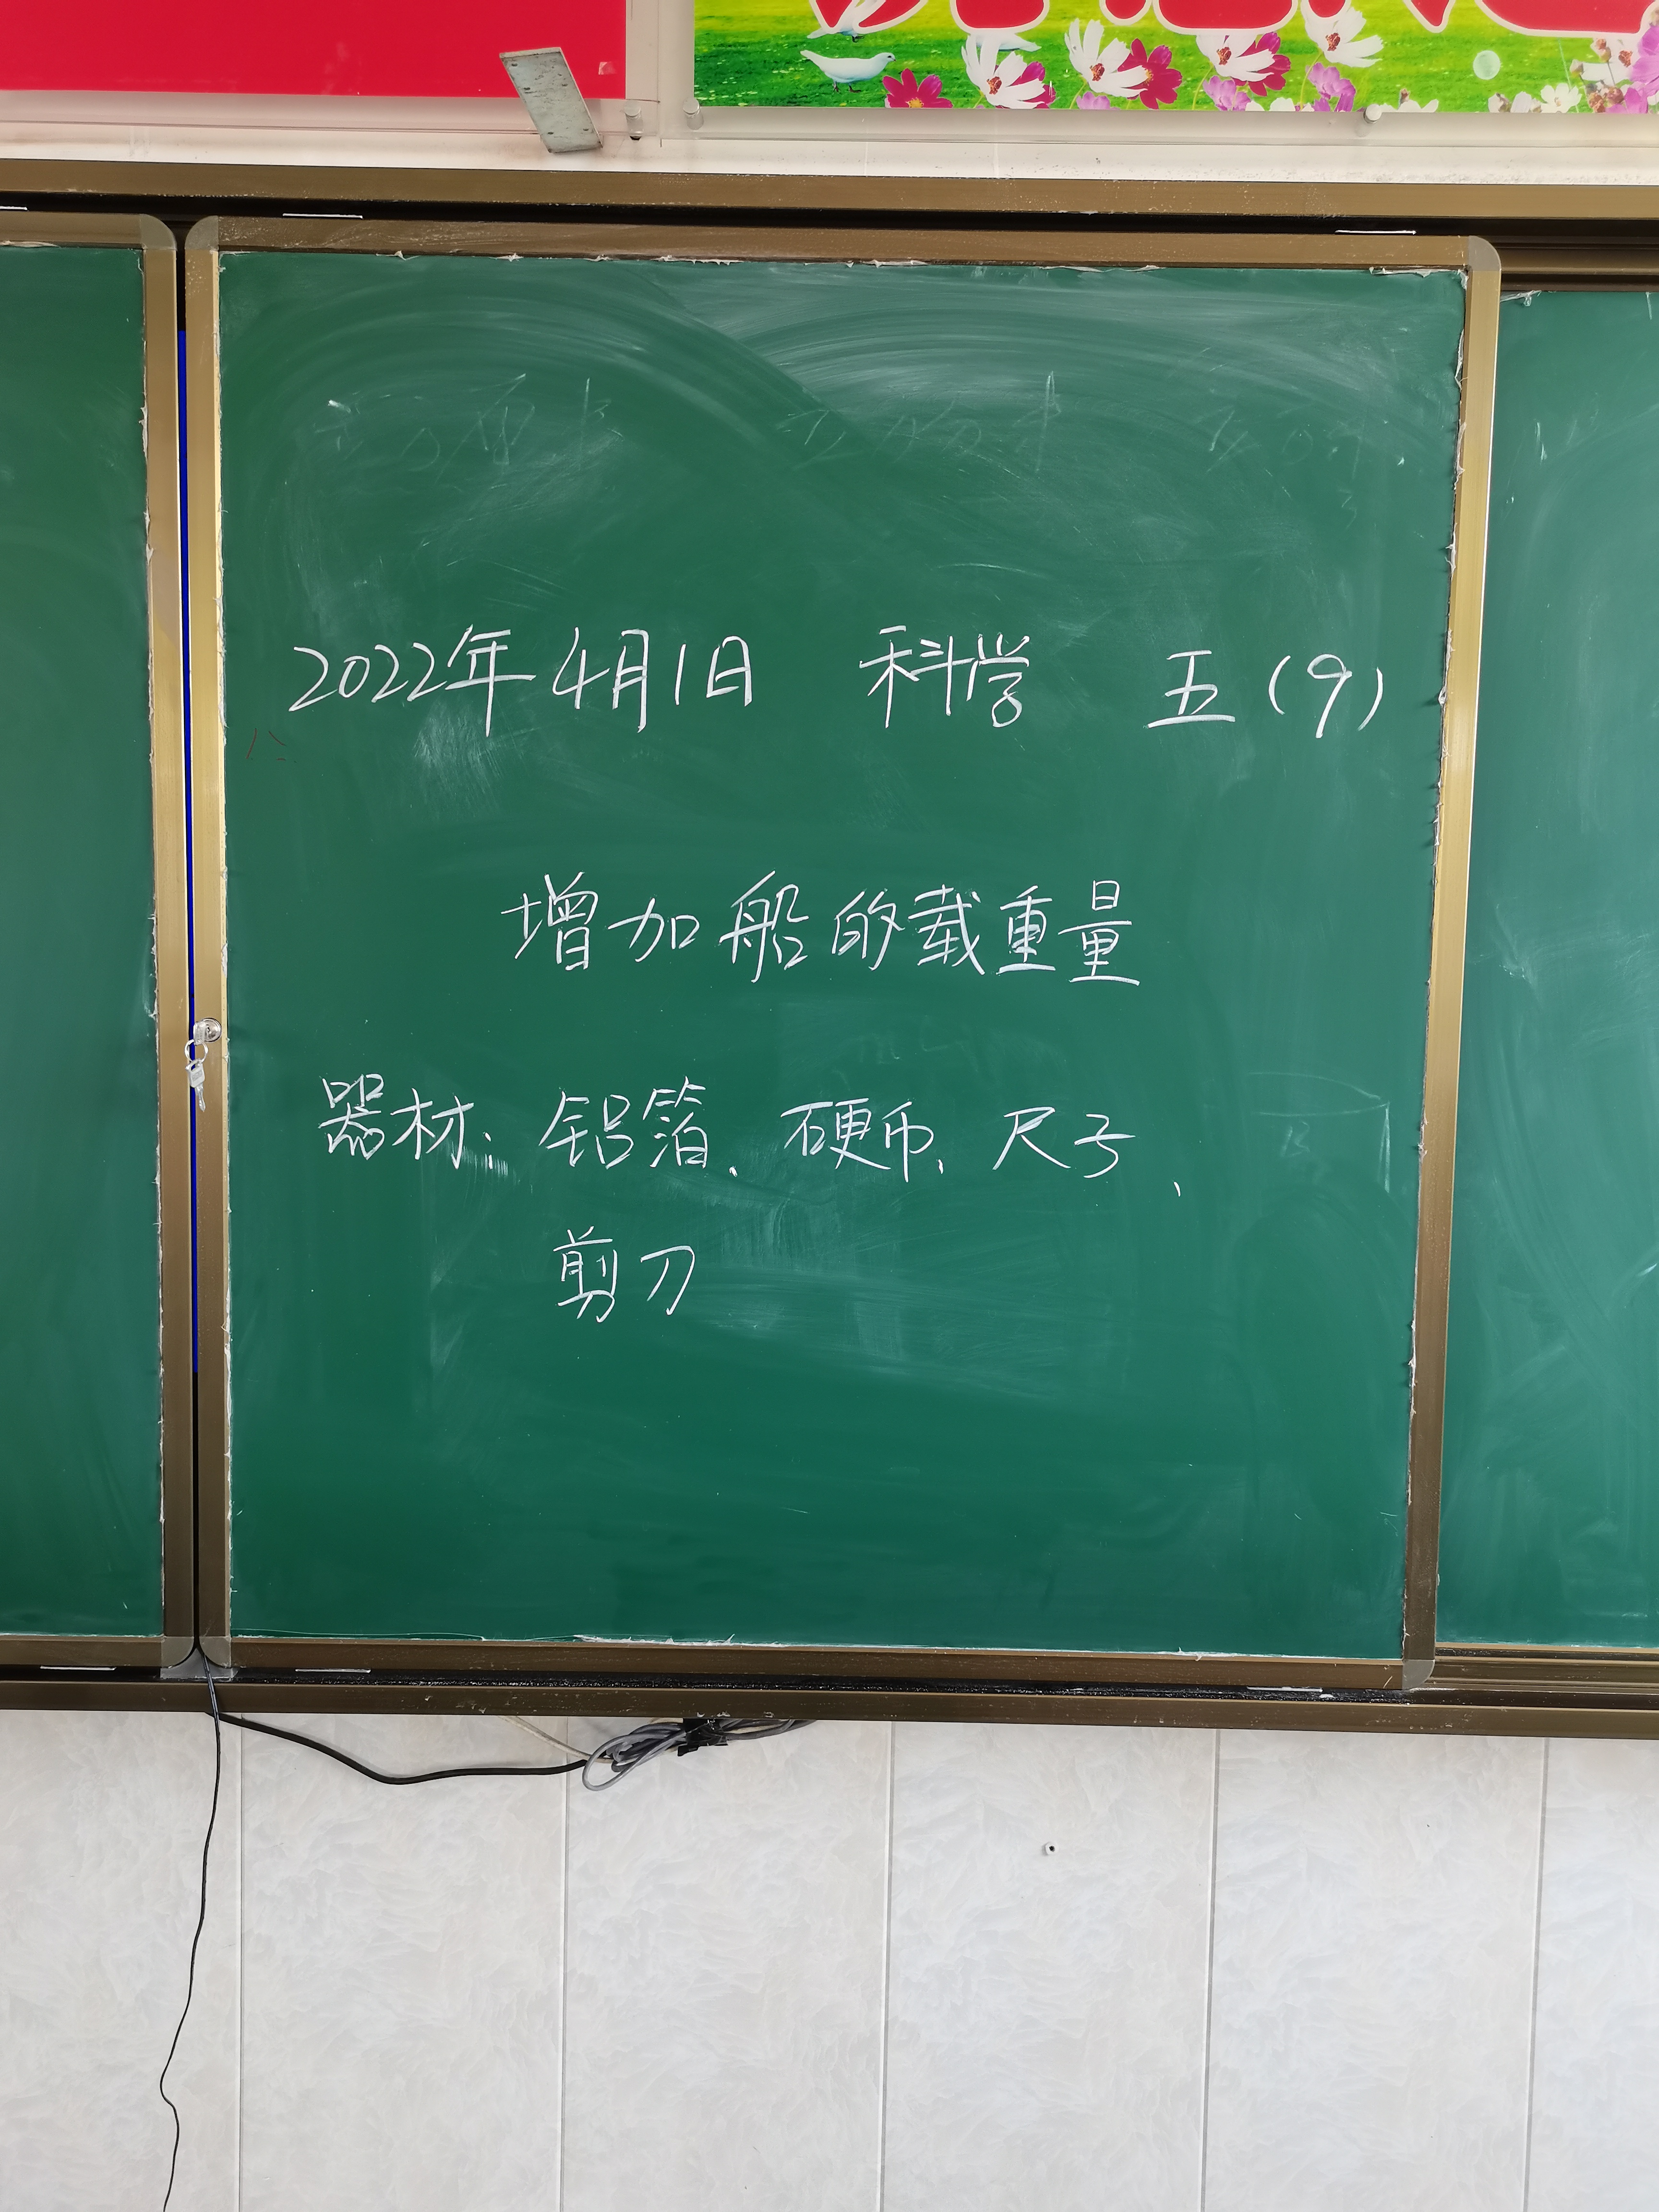 2022年4月1日 科学 五(9)
增加船的载重量
器材：铝箔、硬币、尺子、
剪刀